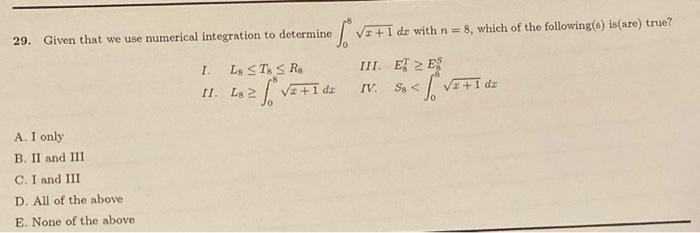 29. Given that we use numerical integration to determine ∫₀⁸ √x+1 dx with n = 8, which of the following(s) is(are) true?
I. L₈ ≤ T₈ ≤ R₈ III. E₈ᵀ ≥ E₈ˢ
II. L₈ ≥ ∫₀⁸ √x+1 dx IV. S₈ < ∫₀⁸ √x+1 dx
A. I only
B. II and III
C. I and III
D. All of the above
E. None of the above